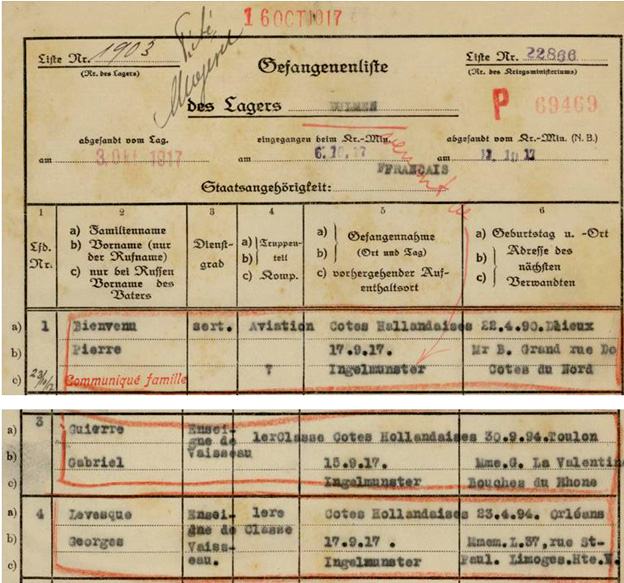 16 OCT 1917
Liste Nr. 1903
(Nr. des Lagers)
Gefangenenliste
Liste Nr. 22866
(Nr. des Kriegsministeriums)
des Lagers DULMEN
P 69469
abgesandt vom Lag.
eingegangen beim Kr.-Min.
abgesandt vom Kr.-Min. (N. B.)
am 3. Okt. 1917
am 6.10.17
am 11.10.17
FFRANCAIS
Staatsangehörigkeit:
1 2 3 4 5 6
Lfd. Nr.
a) Familienname
b) Vorname (nur der Rufname)
c) nur bei Russen Vorname des Vaters
Dienstgrad
a) Truppen-
b) teil
c) Komp.
a) Gefangennahme
b) (Ort und Tag)
c) vorhergehender Aufenthaltsort
a) Geburtstag u. -Ort
b) Adresse des
c) nächsten Verwandten
a) 1 Bienvenu sert. Aviation Cotes Hallandaises 22.4.90.
b) Pierre 17.9.17. Mr B. Grand rue Do
c) Communiqué famille 7 Ingelmunster Cotes du Nord
3
a) Guierre Ensei- 1erClasse Cotes Hollandaises 30.9.94.Toulon
gne de
b) Gabriel Vaisseau 15.9.17. Mme.G. La Valentin
c) Ingelmunster Bouches du Rhone
a) 4 Levesque Ensei- 1ere Cotes Hollandaises 23.4.94. Orléans
b) Georges gne de Classe 17.9.17 . Mmem.L.37,rue St-
Vaiss-
c) eau. Ingelmunster Paul. Limoges.Hte.V.